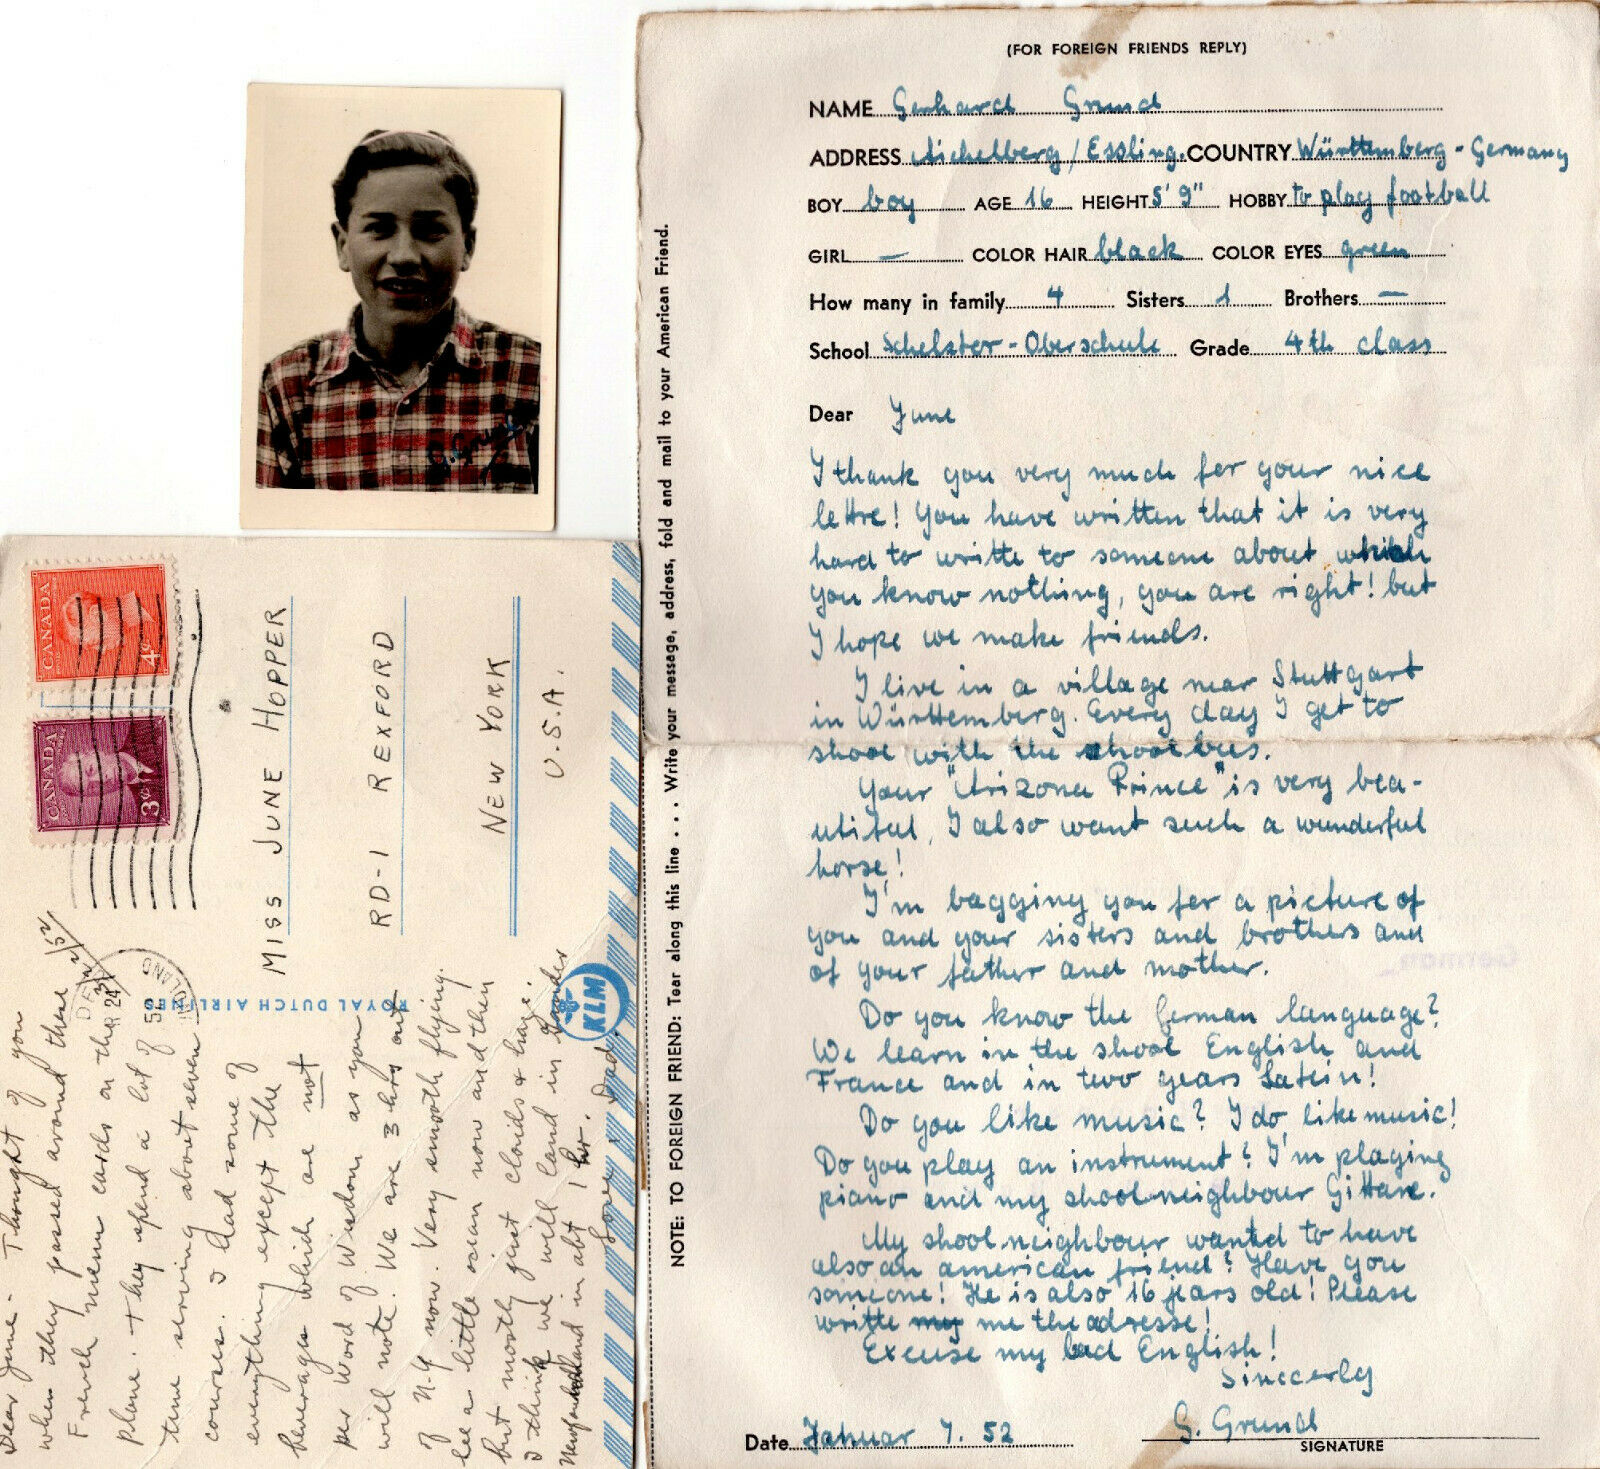 (FOR FOREIGN FRIENDS REPLY)
NAME Gerhard Grund
ADDRESS Aichelberg / Essling. COUNTRY Württemberg - Germany
BOY boy AGE 16 HEIGHT 5' 9" HOBBY to play football
GIRL — COLOR HAIR black COLOR EYES green
How many in family 4 Sisters 1 Brothers —
School Schelztor - Oberschule Grade 4th class
Dear June
I thank you very much for your nice
lettre! You have written that it is very
hard to writte to someone about which
you know nothing, you are right! but
I hope we make friends.
I live in a village near Stuttgart
in Württemberg. Every day I get to
shool with the shoolbus.
Your "Arizona Prince" is very bea-
utiful, I also want such a wunderful
horse!
I'm bagging you for a picture of
you and your sisters and brothers and
of your father and mother.
Do you know the German language?
We learn in the shool English and
France and in two years Latein!
Do you like music? I do like music!
Do you play an instrument? I'm playing
piano and my shoolneighbour Gittare.
My shoolneighbour wanted to have
also an american friend? Have you
someone! He is also 16 jears old! Please
writte me the adresse!
Excuse my bad English!
Sincerely
G. Grund
Date Januar 7. 52
SIGNATURE
NOTE: TO FOREIGN FRIEND: Tear along this line . . . Write your message, address, fold and mail to your American Friend.
G. Grund
CANADA
4¢
CANADA
3¢
24
52
MISS JUNE HOPPER
RD-1 REXFORD
NEW YORK
U.S.A.
ROYAL DUTCH AIRLINES
KLM
Dear June - Thought of you
when they passed around these
French menu cards on the
plane. + they spend a lot of
time serving about seven
courses. I had some of
everything except the
beverages which are not
per Word of Wisdom as you
will note. We are 3 hrs out
of N-Y now. Very smooth flying.
see a little ocean now and then
but mostly just clouds & haze.
I think we will land in Gander
Newfoundland in abt 1 hr.
Love, Dad.